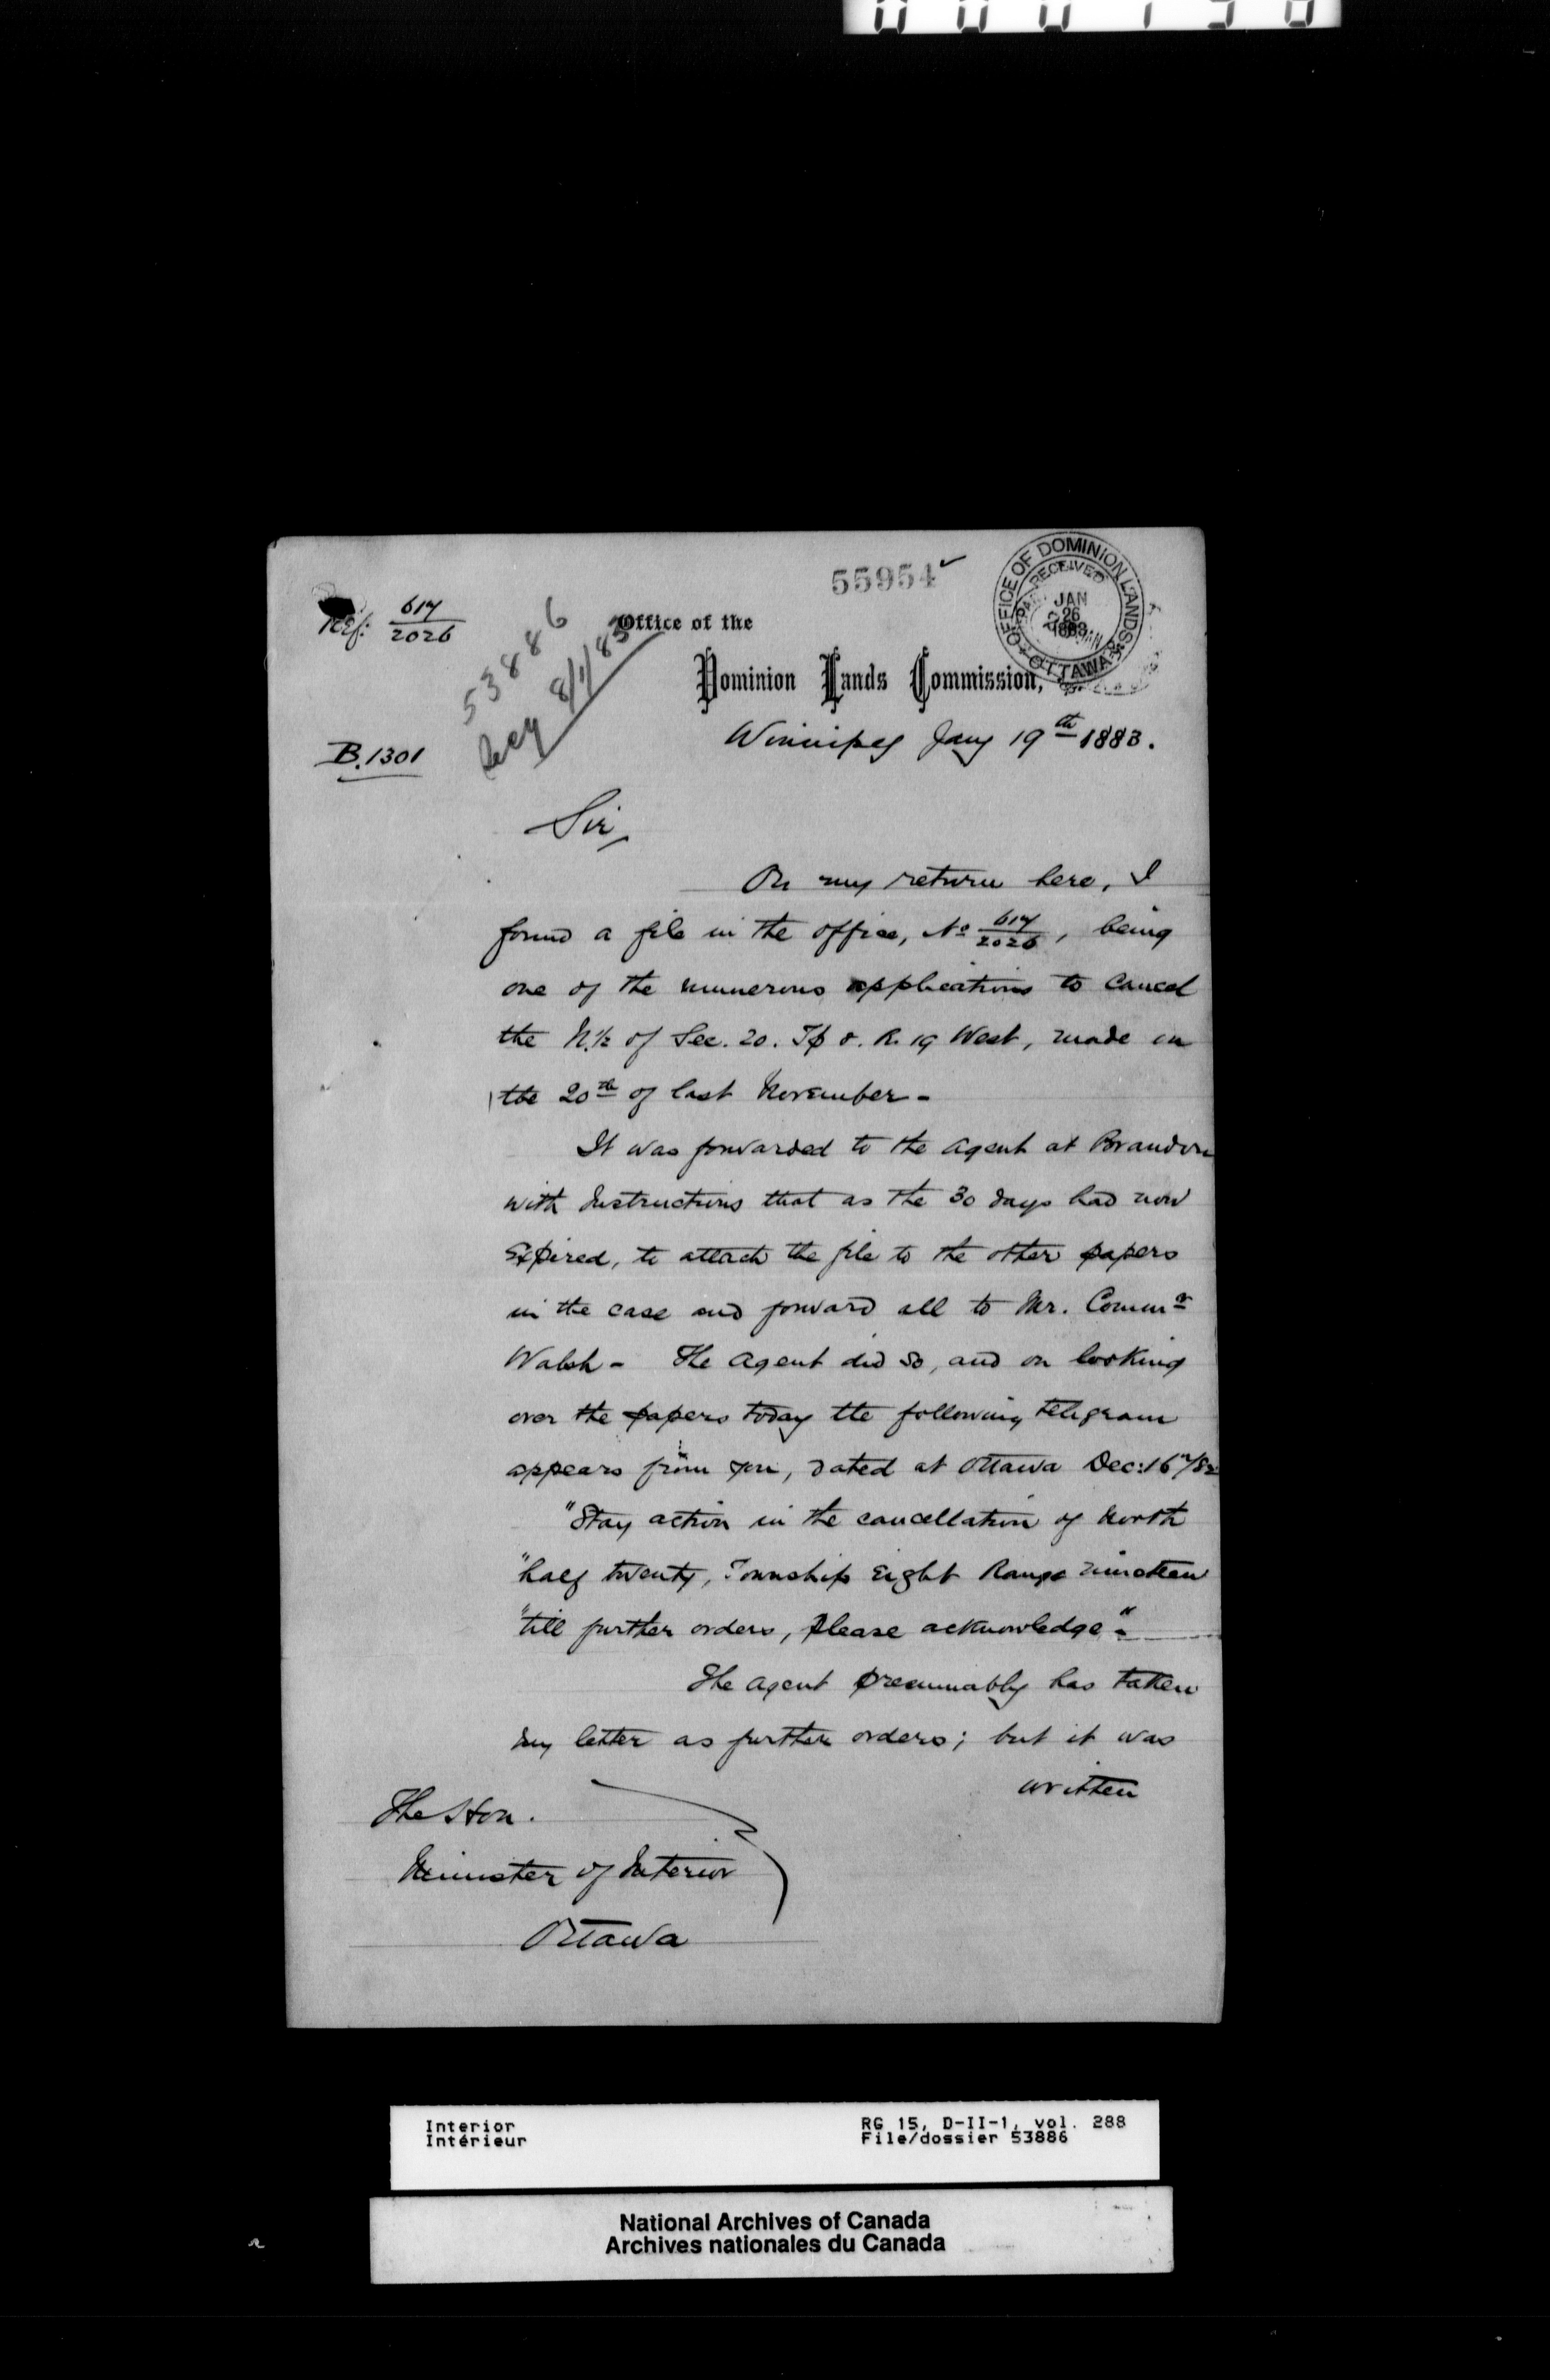 55954
OFFICE OF DOMINION LANDS
OTTAWA
RECEIVED
JAN
26
1883
Ref: 617/2026
53886
8/1/83
Office of the
Dominion Lands Commission,
Winnipeg Jany 19th 1883.
B.1301
Sir,
On my return here, I
found a file in the office, No 617/2026, being
one of the numerous applications to cancel
the N.½ of Sec. 20. Tp 8. R. 19 West, made on
the 20th of last November -
It was forwarded to the Agent at Brandon
with Instructions that as the 30 days had now
Expired, to attach the file to the other papers
in the case and forward all to Mr. Commr
Walsh - The Agent did so, and on looking
over the papers today the following telegram
appears from you, dated at Ottawa Dec: 16"/82
"Stay action in the cancellation of North
"half twenty, Township Eight Range nineteen
"till further orders, please acknowledge" -
The Agent presumably has taken
my letter as further orders; but it was
written
The Hon.
Minister of Interior
Ottawa
Interior
Intérieur
RG 15, D-II-1, vol. 288
File/dossier 53886
National Archives of Canada
Archives nationales du Canada